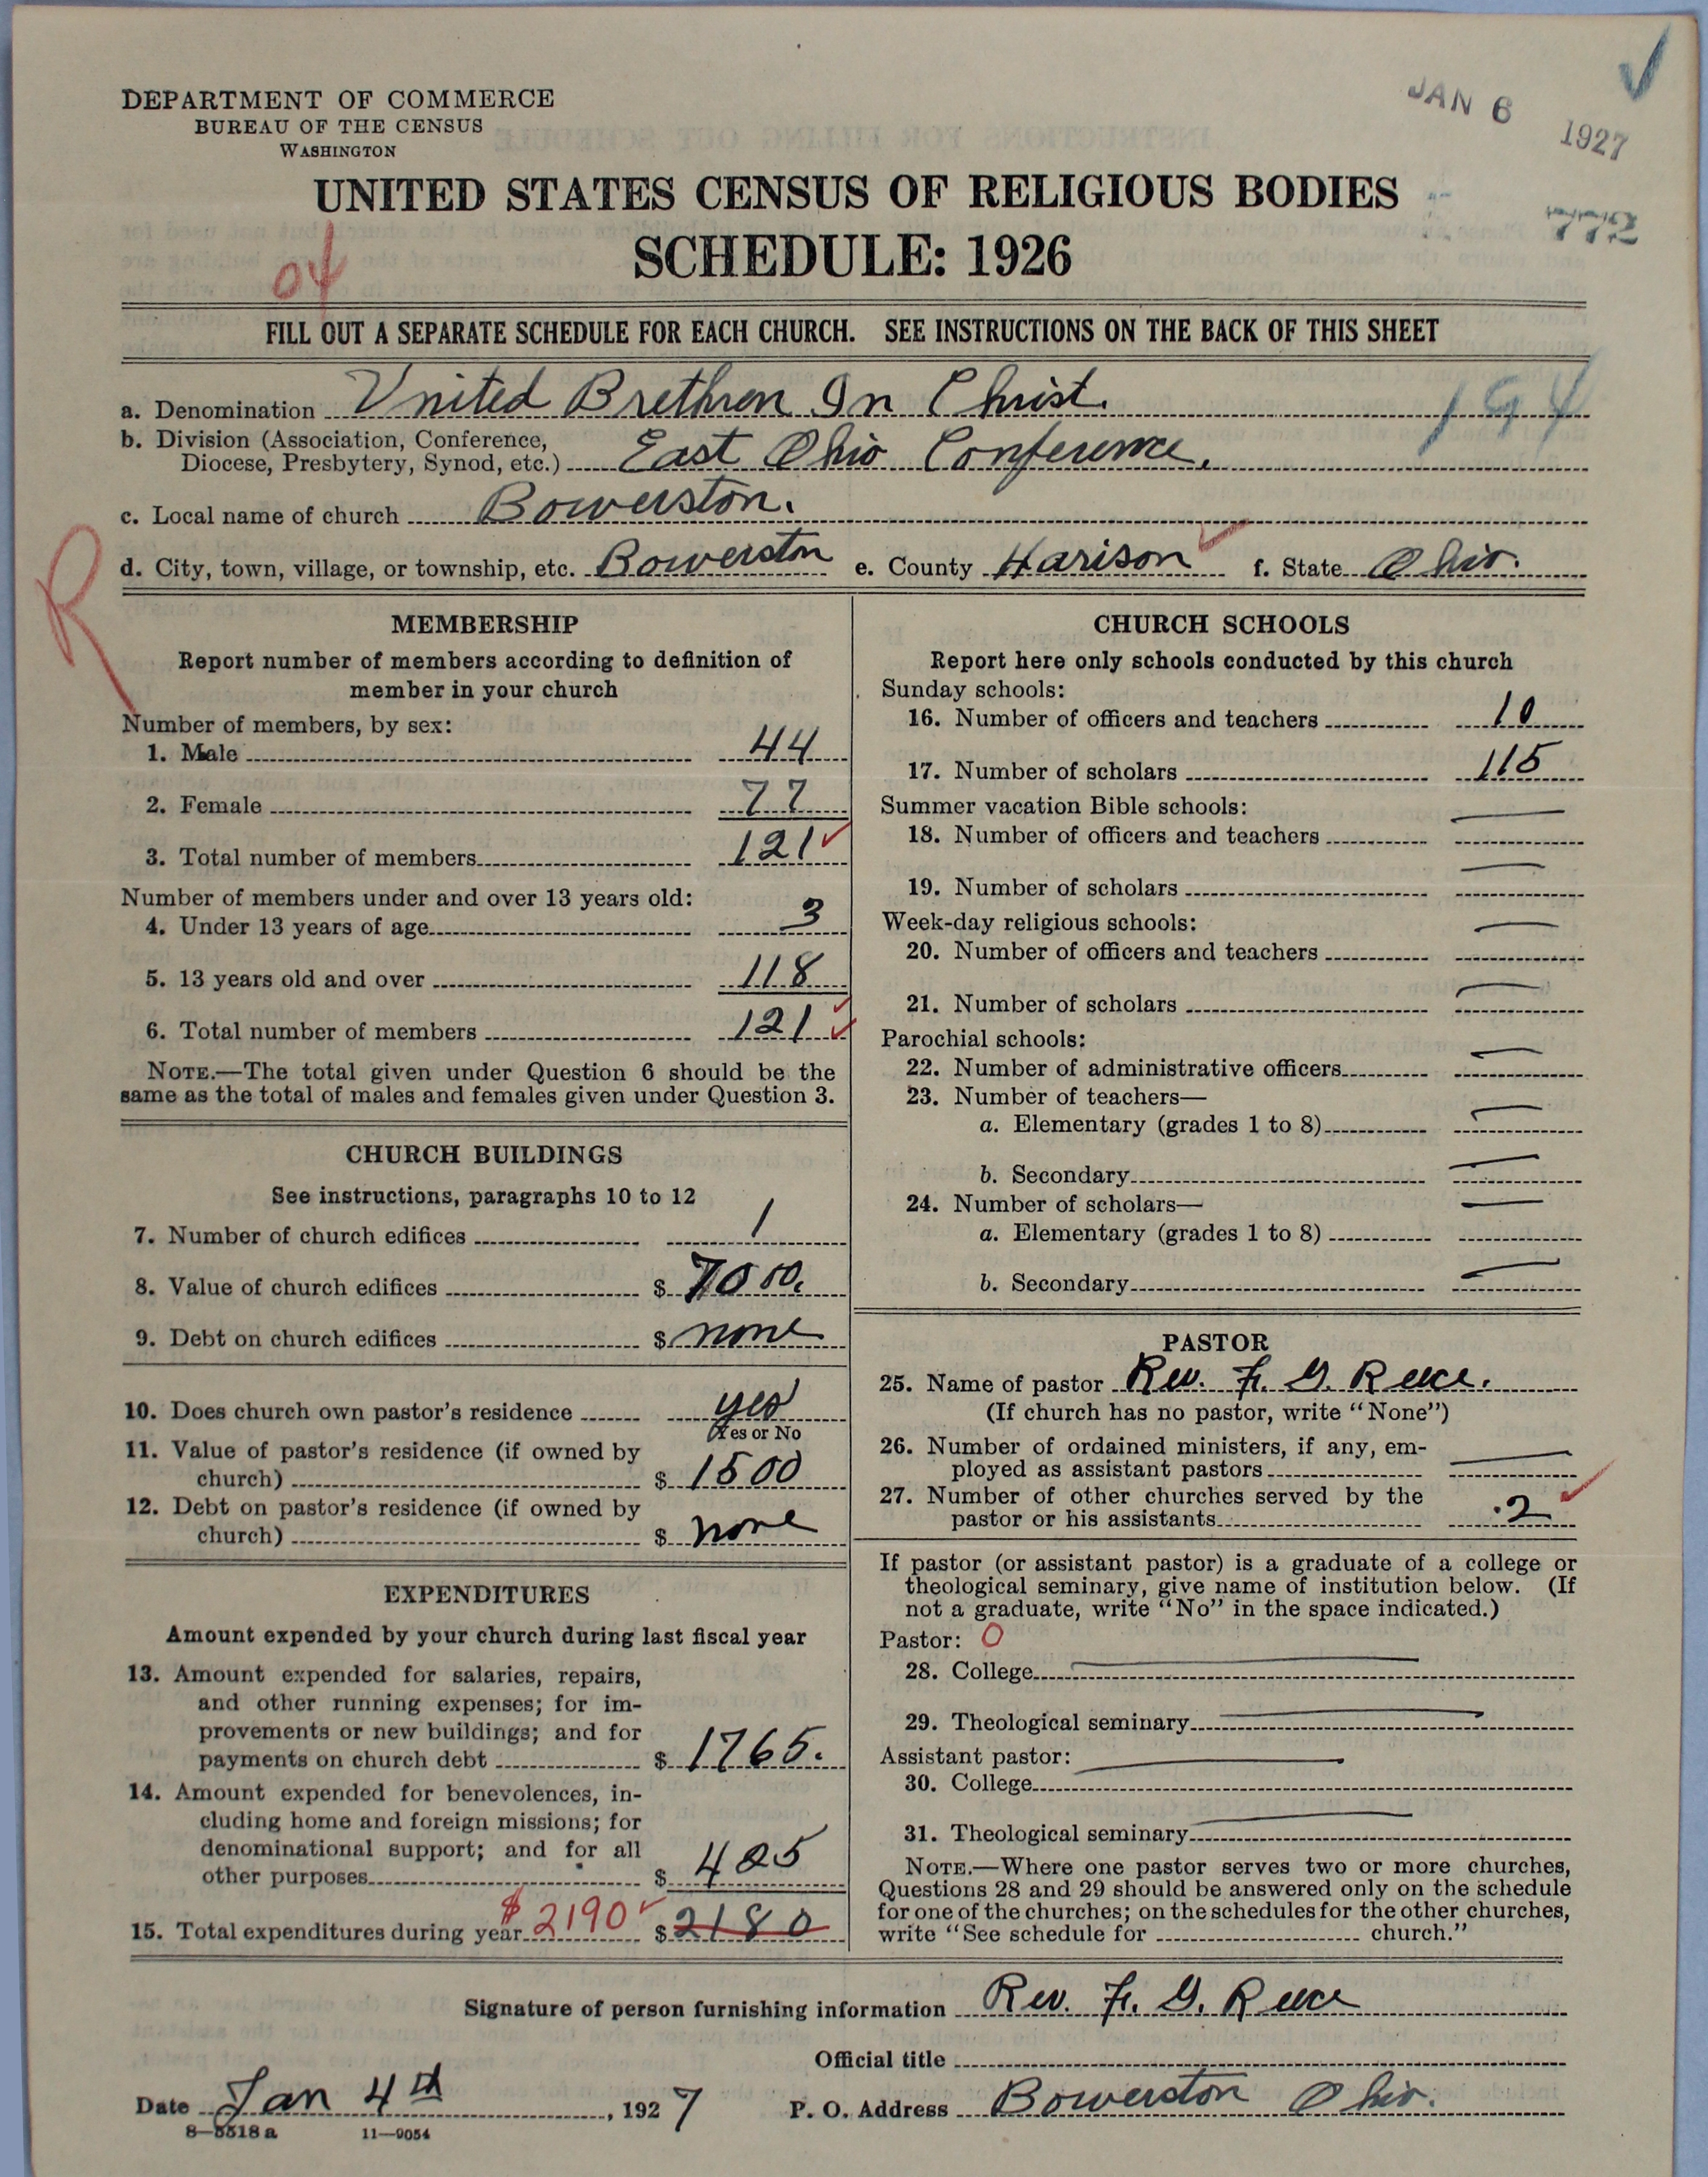 DEPARTMENT OF COMMERCE
BUREAU OF THE CENSUS
WASHINGTON
JAN 6 1927
UNITED STATES CENSUS OF RELIGIOUS BODIES
772
SCHEDULE: 1926
04
FILL OUT A SEPARATE SCHEDULE FOR EACH CHURCH. SEE INSTRUCTIONS ON THE BACK OF THIS SHEET
a. Denomination United Brethren In Christ. 194
b. Division (Association, Conference,
Diocese, Presbytery, Synod, etc.) East Ohio Conference.
c. Local name of church Bowerston.
R
d. City, town, village, or township, etc. Bowerston e. County Harison f. State Ohio.
MEMBERSHIP
Report number of members according to definition of
member in your church
Number of members, by sex:
1. Male 44
2. Female 77
3. Total number of members 121
Number of members under and over 13 years old:
4. Under 13 years of age 3
5. 13 years old and over 118
6. Total number of members 121
NOTE.—The total given under Question 6 should be the
same as the total of males and females given under Question 3.
CHURCH BUILDINGS
See instructions, paragraphs 10 to 12
7. Number of church edifices 1
8. Value of church edifices $ 7000.
9. Debt on church edifices $ none
10. Does church own pastor's residence yes
Yes or No
11. Value of pastor's residence (if owned by
church) $ 1500
12. Debt on pastor's residence (if owned by
church) $ none
EXPENDITURES
Amount expended by your church during last fiscal year
13. Amount expended for salaries, repairs,
and other running expenses; for im-
provements or new buildings; and for
payments on church debt $ 1765.
14. Amount expended for benevolences, in-
cluding home and foreign missions; for
denominational support; and for all
other purposes $ 425
15. Total expenditures during year $2190 $ 2180
CHURCH SCHOOLS
Report here only schools conducted by this church
Sunday schools:
16. Number of officers and teachers 10
17. Number of scholars 115
Summer vacation Bible schools:
18. Number of officers and teachers
19. Number of scholars
Week-day religious schools:
20. Number of officers and teachers
21. Number of scholars
Parochial schools:
22. Number of administrative officers
23. Number of teachers—
a. Elementary (grades 1 to 8)
b. Secondary
24. Number of scholars—
a. Elementary (grades 1 to 8)
b. Secondary
PASTOR
25. Name of pastor Rev. F. G. Reece.
(If church has no pastor, write "None")
26. Number of ordained ministers, if any, em-
ployed as assistant pastors
27. Number of other churches served by the
pastor or his assistants 2
If pastor (or assistant pastor) is a graduate of a college or
theological seminary, give name of institution below. (If
not a graduate, write "No" in the space indicated.)
Pastor: O
28. College
29. Theological seminary
Assistant pastor:
30. College
31. Theological seminary
NOTE.—Where one pastor serves two or more churches,
Questions 28 and 29 should be answered only on the schedule
for one of the churches; on the schedules for the other churches,
write "See schedule for church."
Signature of person furnishing information Rev. F. G. Reece
Official title
Date Jan 4th, 1927 P. O. Address Bowerston Ohio.
8—5518 a 11—9054